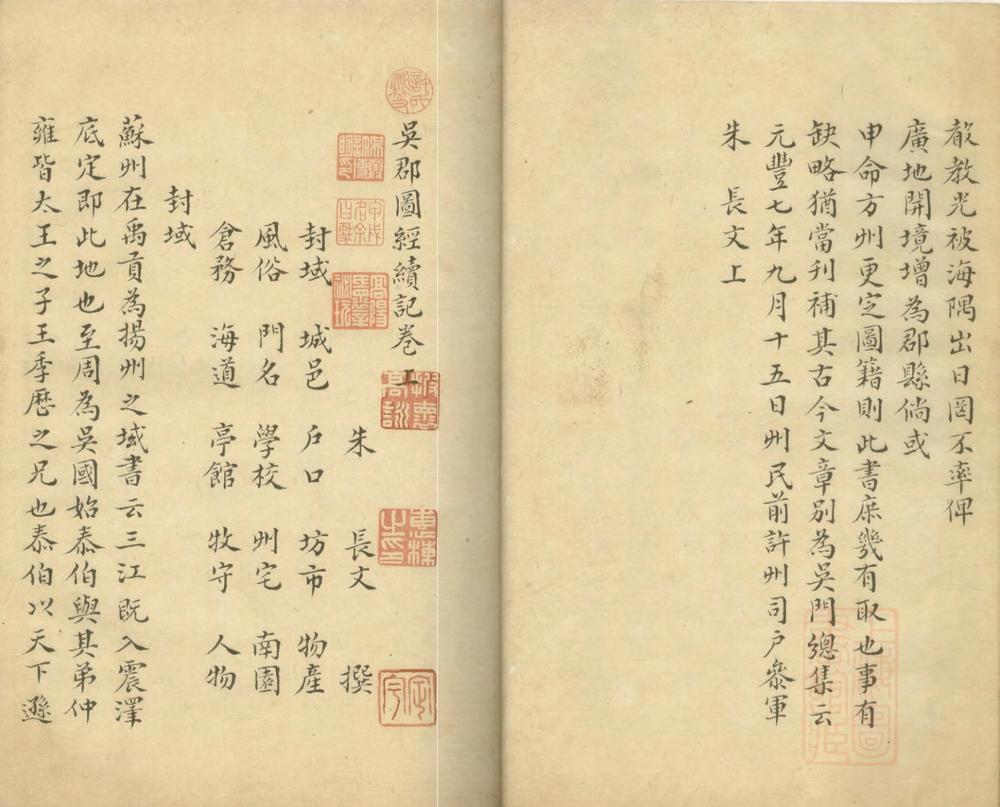 聲教光被海隅出日罔不率俾
廣地開境增為郡縣倘或
申命方州更定圖籍則此書庶幾有取也事有
缺略猶當刊補其古今文章別為吳門總集云
元豐七年九月十五日州民前許州司戶叅軍
朱長文上
吳郡圖經續記卷上
朱 長文 撰
封域 城邑 戶口 坊市 物產
風俗 門名 學校 州宅 南園
倉務 海道 亭館 牧守 人物
封域
蘇州在禹貢為揚州之域書云三江既入震澤
底定即此地也至周為吳國始泰伯與其弟仲
雍皆太王之子王季歷之兄也泰伯以天下遜